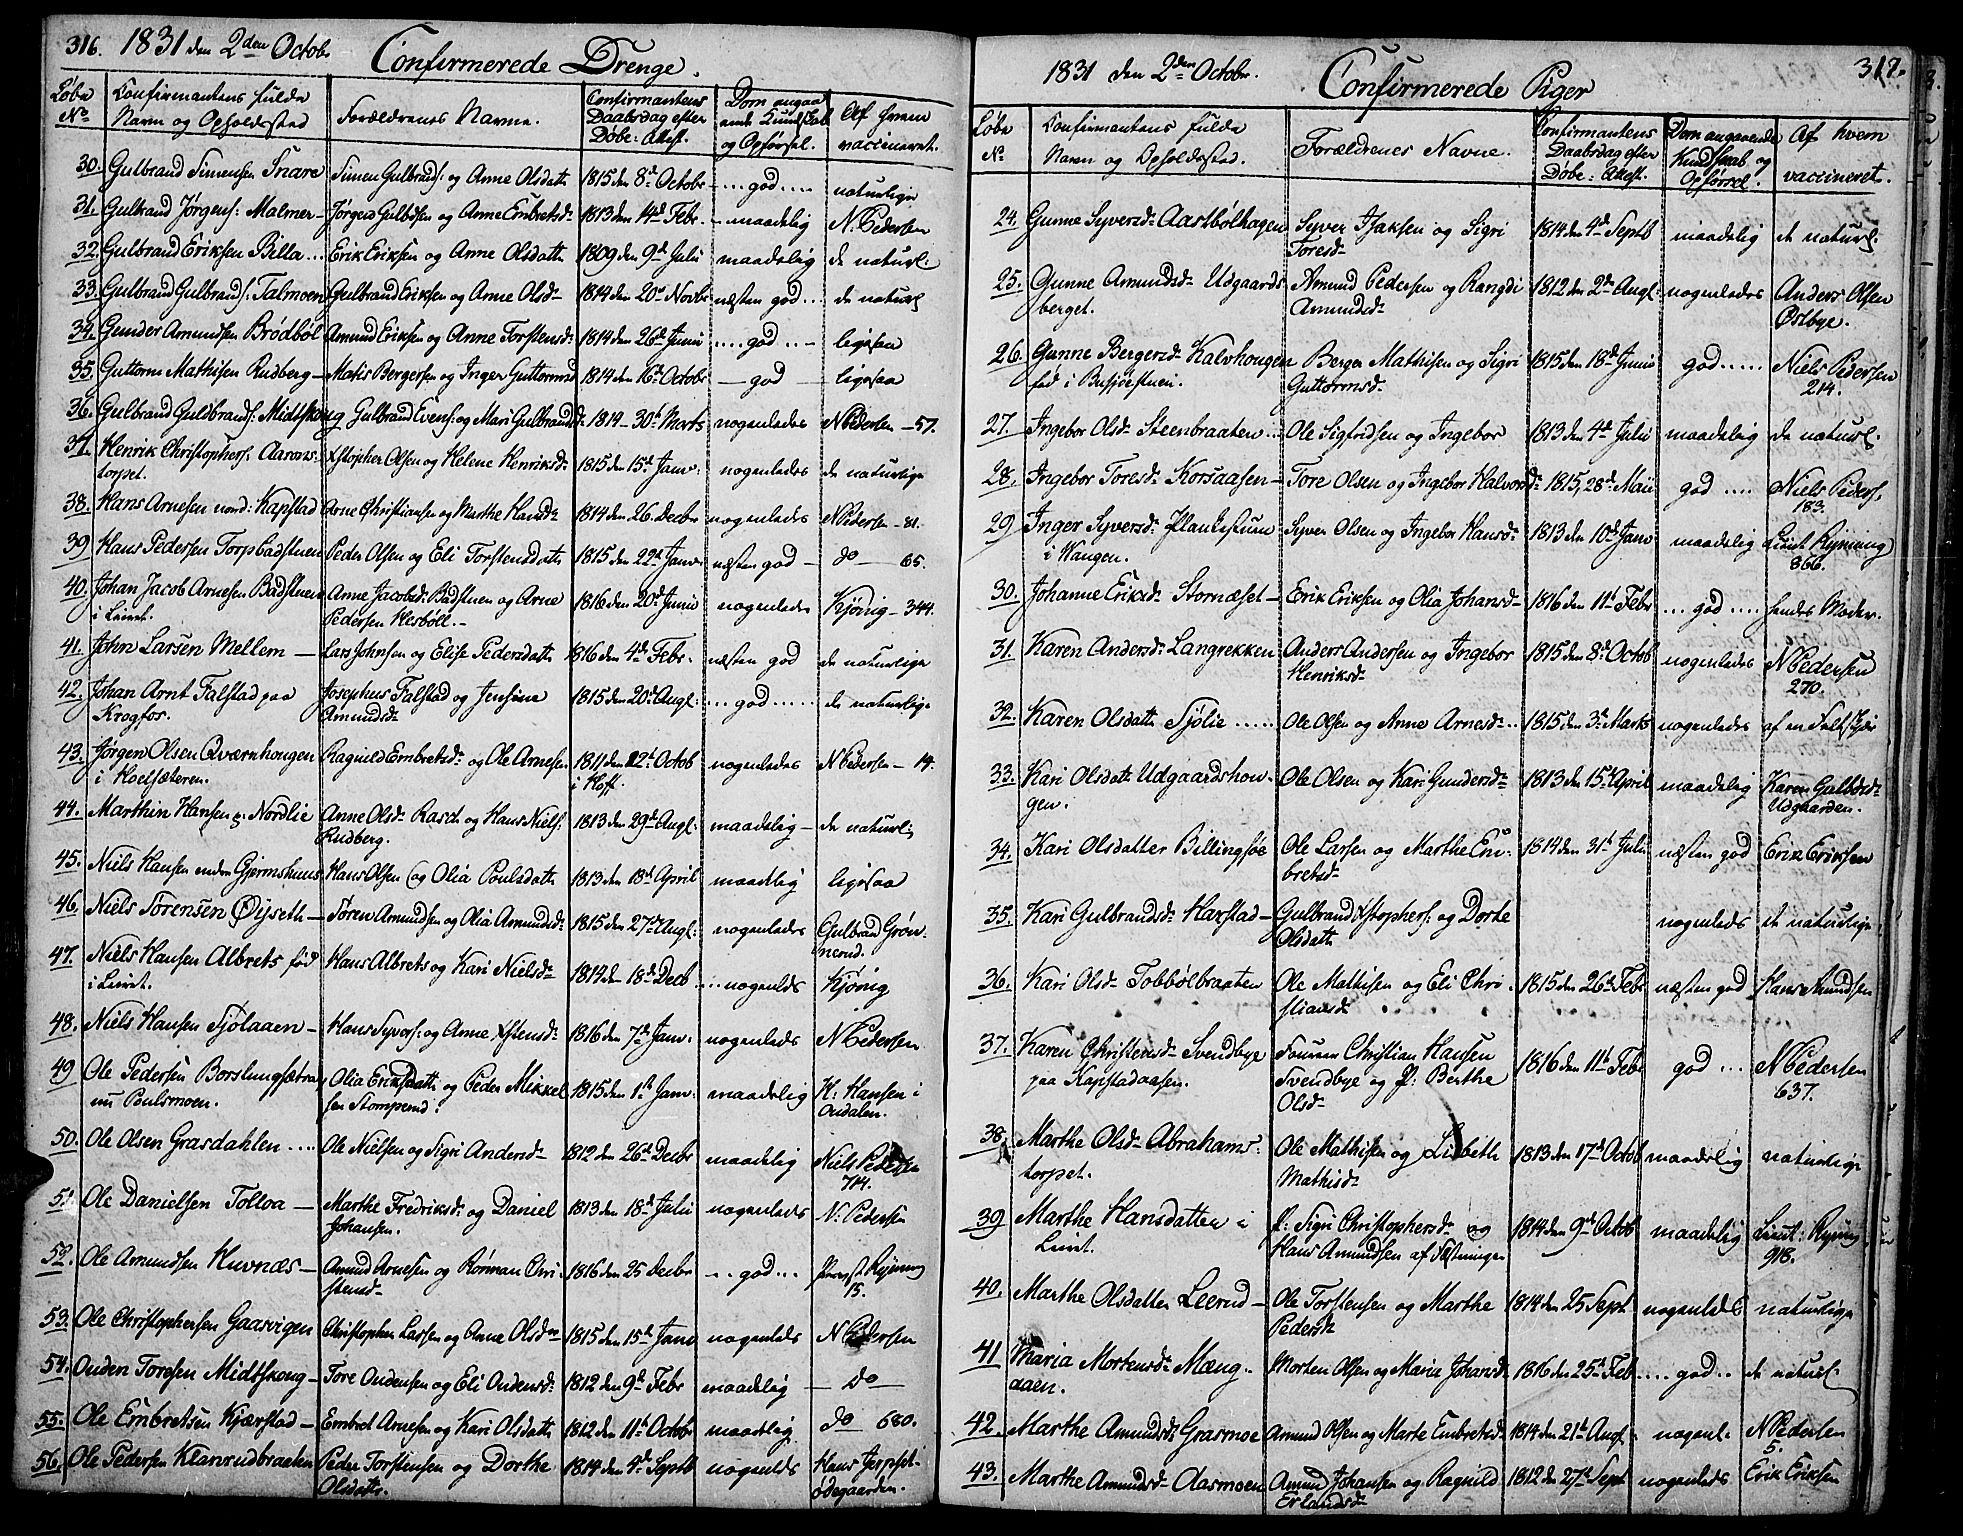 316. 1831 den 2den Octobr Confirmerede Drenge.
Løbe No
Confirmantens fulde Navn og Opholdssted
Forældrenes Navne.
Confirmantens Daabsdag efter Døbe-Attest.
Dom angaaende Kundskab og Opførsel.
Af hvem vaccineret.
30. Gulbrand Simensen Snare Simen Gulbrands: og Anne Olsdatt 1815 den 8d Octobr -...god.... naturlige
31. Gulbrand Jørgens: Malmer- Jørgen Gulbdsen og Anne Embretsd- 1813 den 14d Febr. - maadelig N. Pedersen
32. Gulbrand Eriksen Billa... Erik Eriksen og Anne Olsdatt 1809 den 9d Julii maadelig de naturl:
33. Gulbrand Gulbrands: Talmoen Gulbrand Eriksen og Anne Olsd- 1814 den 20d Novbr næsten god... de naturl
34. Gunder Amundsen Brødbøl Amund Eriksen og Anne Torstensd: 1814 den 26d Junii ....god...- ligesaa
35. Guttorm Mathisen Rudberg- Matis Bergersen og Inger Guttormsd 1814 den 16d Octobr - god - ligesaa
36. Gulbrand Guldbrands: Midtskoug Gulbrand Evens: og Mari Gulbrandsd: 1814 - 30d Marts nogenledes N Pedersen - 57.
37. Henrik Christophers: Aarons- Xstopher Olsen og Helene Henriksd- 1815 den 15d Janv: nogenledes de naturlige
torpet.
38. Hans Arnesen nord: Kapstad Arne Christiansen og Marthe Hansd- 1814 den 26. Decbr nogenledes N Pedersen - 81.
39 Hans Pedersen Torpbadstuen Peder Olsen og Eli Torstensdatt 1815 den 22d Janv: næsten god - do - 65.
40. Johan Jacob Arnesen Badstuen Anne Jacobsd: Badstuen og Arne 1816 den 20d Junii nogenledes Kjönig - 344.
i Leiret. Pedersen Hesbøll.-
41. John Larsen Mellem - Lars Johnsen og Elise Pedersdatt 1816 den 4d Febr. næsten god de naturlige
42. Johan Arnt Falstad paa Josephus Falstad og Jensine 1815 den 20d Augl: ...god...... de naturlige
Krogfos. Amundsd-
43. Jørgen Olsen Qværnhougen Ragnild Embretsd- og Ole Arnesen 1811 den 12d Octob nogenledes N Pedersen - 14.
i Hoelsæteren. i Hoff.
44. Marthin Hansen Nordlie Anne Olsd- Rasch og Hans Niels: 1813 den 29d Augl: maadelig - de naturlig
Rudberg.
45. Niels Hansen enden Gjermshuus Hans Olsen og Olia Poulsdatt 1813 den 18d April maadelig ligesaa
46. Niels Sörensen Öijseth- Sören Amundsen og Olia Amundsd: 1815 den 27d Augl: nogenledes Gulbrand Grøn
nerud.
47. Niels Hansen Albrets fød Hans Albrets og Kari Nielsd- 1814 den 18d Decb ...nogenlds Kjönig
i Leiret.
48. Niels Hansen Sjölaaen - Hans Syvers: og Anne Xstensd- 1816 den 7d Janv. nogenleds N Pedersen
49 Ole Pedersen Borslungsætra Olia Eriksdatt og Peder Mikkel 1815 den 1st Janv- maadelig H: Hansen i
nu Poulsmoen. sen Stomperud. Oudalen.
50. Ole Olsen Grasdahlen .... Ole Nielsen og Sigri Andersd- 1812 den 26d Decbr maadelig Niels Pedersen
714.
51. Ole Danielsen Tolloa - Marthe Fredriksd- og Daniel 1813 den 18d Julii nogenleds N. Pedersen
Johansen.
52. Ole Amundsen Huvnæs- Amund Arnesen og Rønnau Chri- 1816 den 25 Decbr -..god... Ryning
stensd- 15.
53. Ole Christophersen Gaasvigen Christopher Larsen og Anne Olsd 1815 den 15d Janv nogenlds N Pedersen
54. Ouden Toresen Midtskoug- Tore Oudensen og Eli Oudensd: 1812 den 9d Febr maadelig - do -
55. Ole Embretsen Kjærstad- Embret Arnesen og Kari Olsdatt 1812 den 11t Octobr maadlig do 680.
56. Ole Pedersen Klanrudbraaten Peder Torstensen og Dorthe 1814 den 4d Septb nogenlds Hans Jerpset-
Olsdatt. ødegaarden.
1831 den 2den Octobr. Confirmerede Piger 317.
Løbe No
Confirmantens fulde Navn og Opholdssted.
Forældrenes Navne.
Confirmantens Daabsdag efter Døbe-Attest.
Dom angaaende Kundskab og Opførsel.
Af hvem vaccineret.
24. Gunne Syversd: Aastbølhagen Syver Isaksen og Sigri 1814 den 4d Septb maadelig de naturl.
Toresd-
25. Gunne Amundsd- Udgaards Amund Pedersen og Rangdi 1812 den 2den Augl: nogenledes Anders Olsen
berget. Amundsd- Østbye.
26. Gunne Bergersd: Kalvhougen Berger Mathisen og Sigri 1815 den 18d Junii god..... Niels Pedersen
fød i Busjöestuen. Guttormsd- 214.
27. Ingebor Olsd- Steenbraaten... Ole Sigfridsen og Ingebor 1813 den 4d Julii maadelig de naturl.
28. Ingebor Toresd- Korsaasen- Tore Olsen og Ingebor Halvorsd- 1815, 28d Maii god .... Niels Peders.
183.
29 Inger Syversd- Plankestuen Syver Olsen og Ingebor Hansd- 1813 den 10d Janv maadelig Lieut Ryning
i Vangen. 866.
30. Johanne Eriksd- Stornæset- Erik Eriksen og Olia Johansd- 1816 den 11t Febr ...god.... hendes Moder.
31. Karen Andersd: Langrekken Anders Andersen og Ingebor 1815 den 8d Octob nogenledes N Pedersen
Henriksd- 270.
32. Karen Olsdatt Sjölie ...... Ole Olsen og Anne Arnesd-.. 1815 den 3d Marts nogenledes af en Feltskjær
33. Kari Olsdatt Udgaardshou- Ole Olsen og Kari Gundersd- 1813 den 15d April maadelig Karen Gulbdsd-
gen. Udgaarden.
34. Kari Olsdatter Billingsöe Ole Larsen og Marthe Em- 1814 den 31d Julii næsten god Erik Eriksen
bretsd-
35. Kari Gulbrandsd: Harstad- Gulbrand Xstophers: og Dorte nogenleds de naturlige
Olsdatt
36. Kari Olsd- Tobbölbraaten Ole Mathisen og Eli Chri- 1815 den 26d Febr næsten god Hans Amundsen
stiansd-
37. Karen Christensd- Svendbye Foureer Christian Hansen 1816 den 11t Febr god ... N Pedersen
paa Kapstadaasen. Svendbye og P: Berthe 637.
Olsd-
38. Marthe Olsd- Abrahams- Ole Mathisen og Lisbeth 1813 den 17d Octob maadelig naturlige
torpet. Mathisd-
39 Marthe Hansdatter i P: Sigri Christophersd- og 1814 den 9d Octob maadelig Lieut: Ryning
Leiret. Hans Amundsen af Fætningen 918.
40. Marthe Olsdatter Leerud- Ole Torstensen og Marthe 1814 den 25 Sept nogenlds naturlige
Pedersd-
41 Maria Mortensd- Mæng- Morten Olsen og Maria Johansd 1816 den 25d Feb ....god.. de naturl.
aaen.
42. Marthe Amundsd: Grasmoe Amund Olsen og Marte Embretsd- 1814 den 21d Augl: nogenl- N Pedersen
5.
43. Marthe Amundsd- Aasmoen Amund Johansen og Ragnild 1812 den 27d Sept nogenleds Erik Eriksen
Erlandsd-